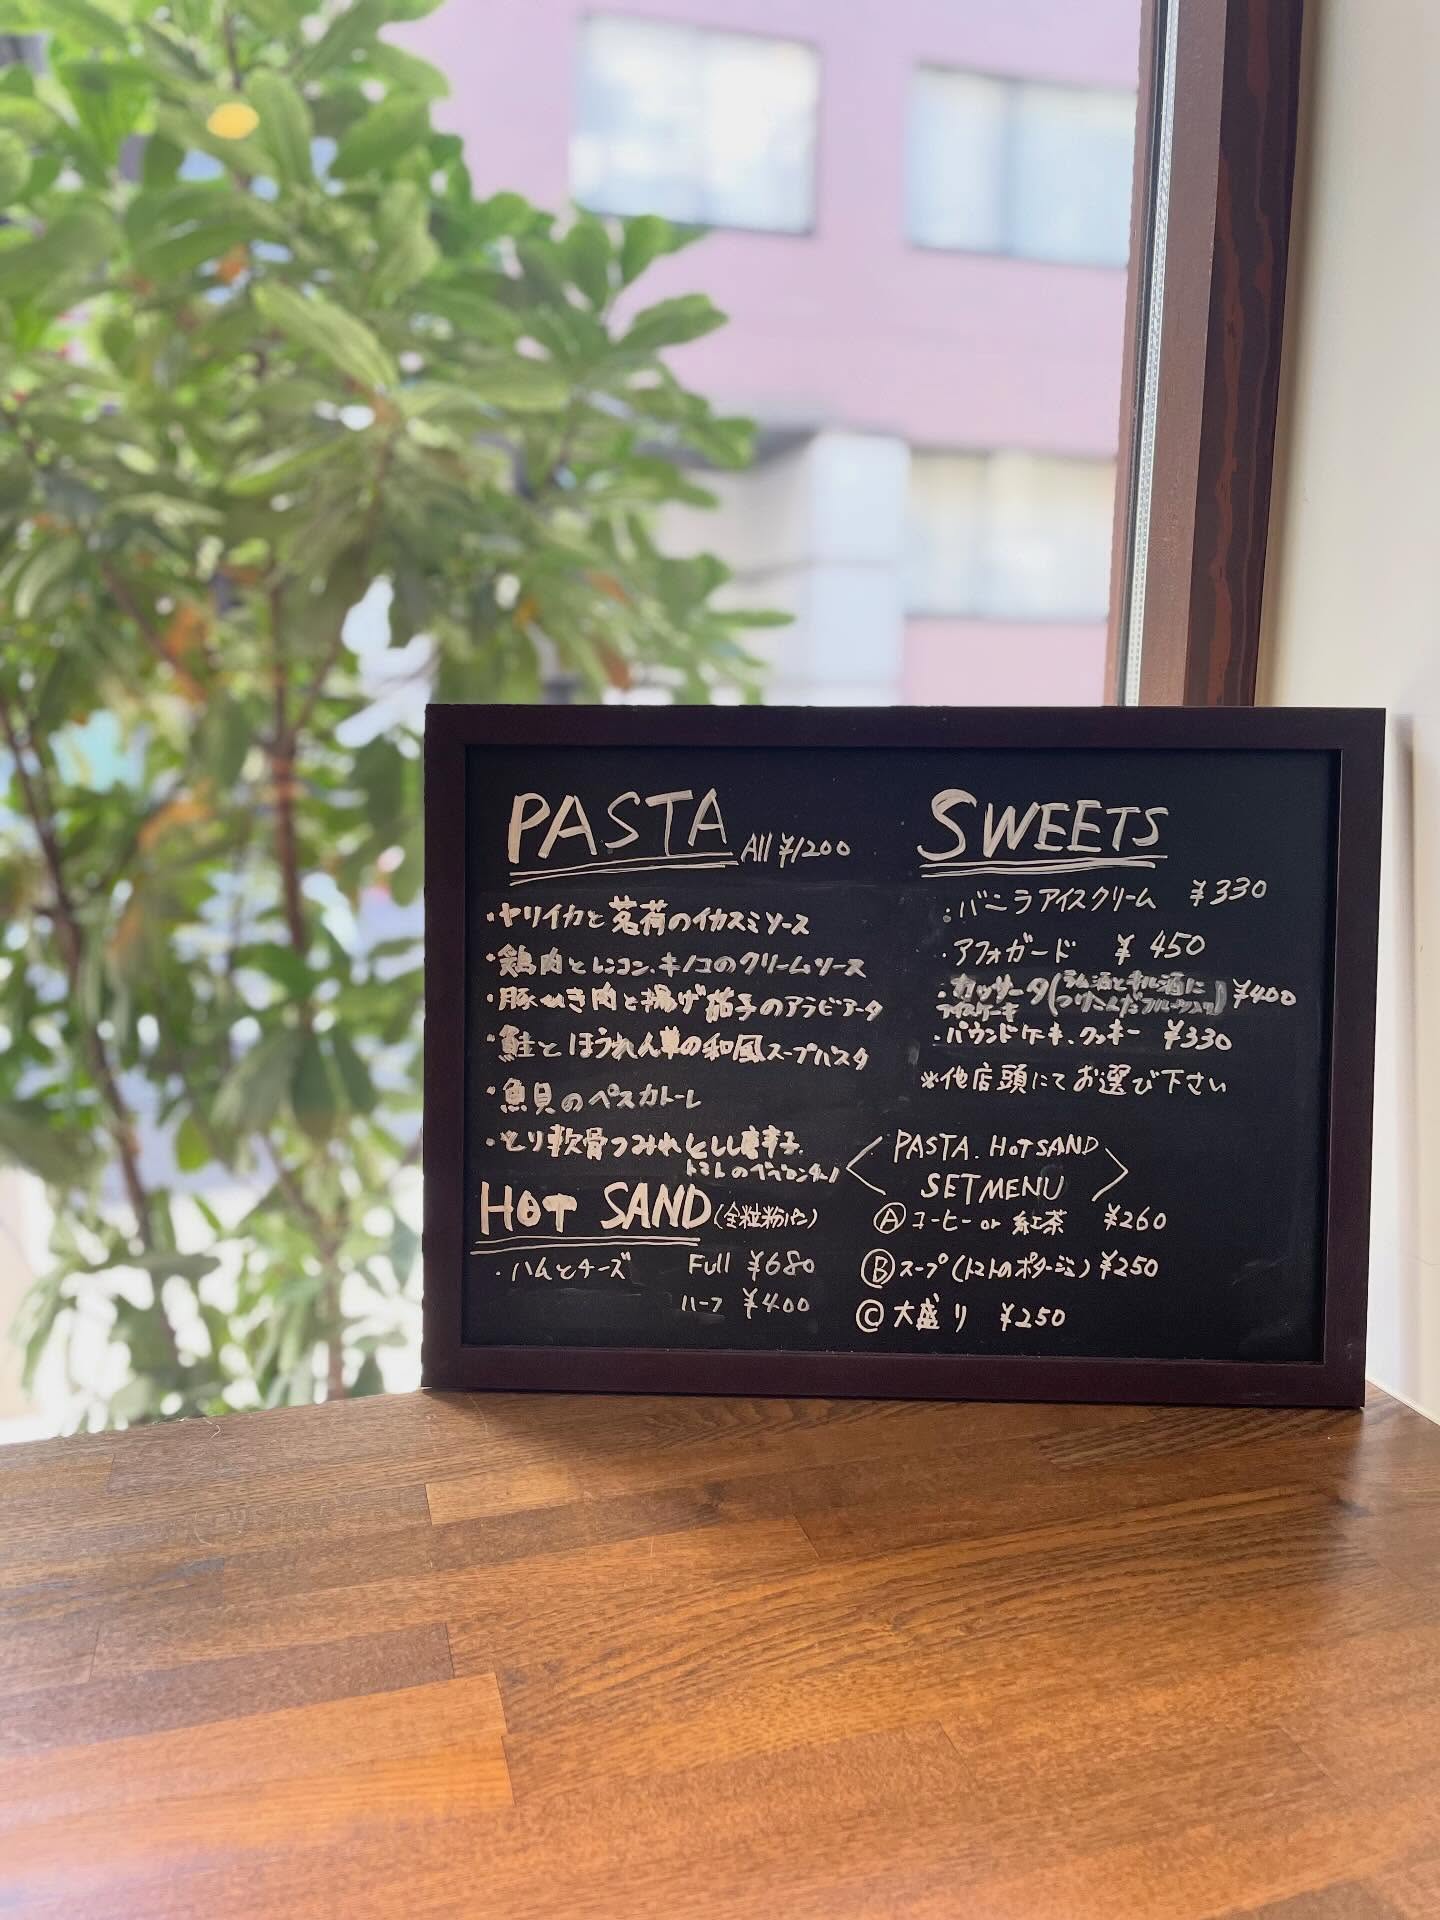 PASTA All ¥1200
・ヤリイカと茗荷のイカスミソース
・鶏肉とレンコン、キノコのクリームソース
・豚ひき肉と揚げ茄子のアラビアータ
・鮭とほうれん草の和風スープパスタ
・魚貝のペスカトーレ
・とり軟骨つみれとしし唐辛子、
トマトのペペロンチーノ
HOT SAND (全粒粉パン)
・ハムとチーズ Full ¥680
ハーフ ¥400
SWEETS
・バニラアイスクリーム ¥330
・アフォガード ¥450
・カッサータ(ラム酒とキルシュ酒に
アイスケーキ つけこんだフルーツ入り) ¥400
・パウンドケーキ、クッキー ¥330
※他店頭にてお選び下さい
PASTA. HOT SAND
SET MENU
Ⓐ コーヒー or 紅茶 ¥260
Ⓑ スープ(トマトのポタージュ) ¥250
Ⓒ 大盛り ¥250